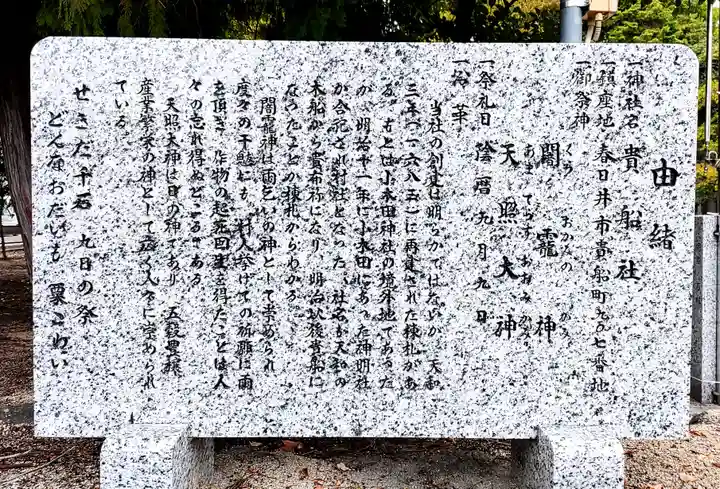 由緒
一神社名 貴船社
一鎮座地 春日井市貴船町九〇七番地
一御祭神 くら おかみの かみ
闇龗神
あま てらす おおみ かみ
天照大神
一祭礼日 陰暦九月九日
一沿革
当社の創建は明らかではないが、天和
三年(一六八三)に再建された棟札があ
る。もとは小木田神社の境外地であった
が、明治十一年に小木田にあった神明社
が合祀され村社となった。社名も天和の
木船から貴布祢になり、明治以後貴船に
なったことが棟札からわかる。
闇龗神は雨乞いの神として崇められ
度々の干魃にも、村人挙げての祈願に雨
を頂き、作物の起死回生を得たことは人
々の忘れ得ぬところである。
天照大神は日の神であり、五穀豊穣、
産業繁栄の神として広く人々に崇められ
ている。
せきだ千石 九日の祭
どんなおだいも 粟こわい